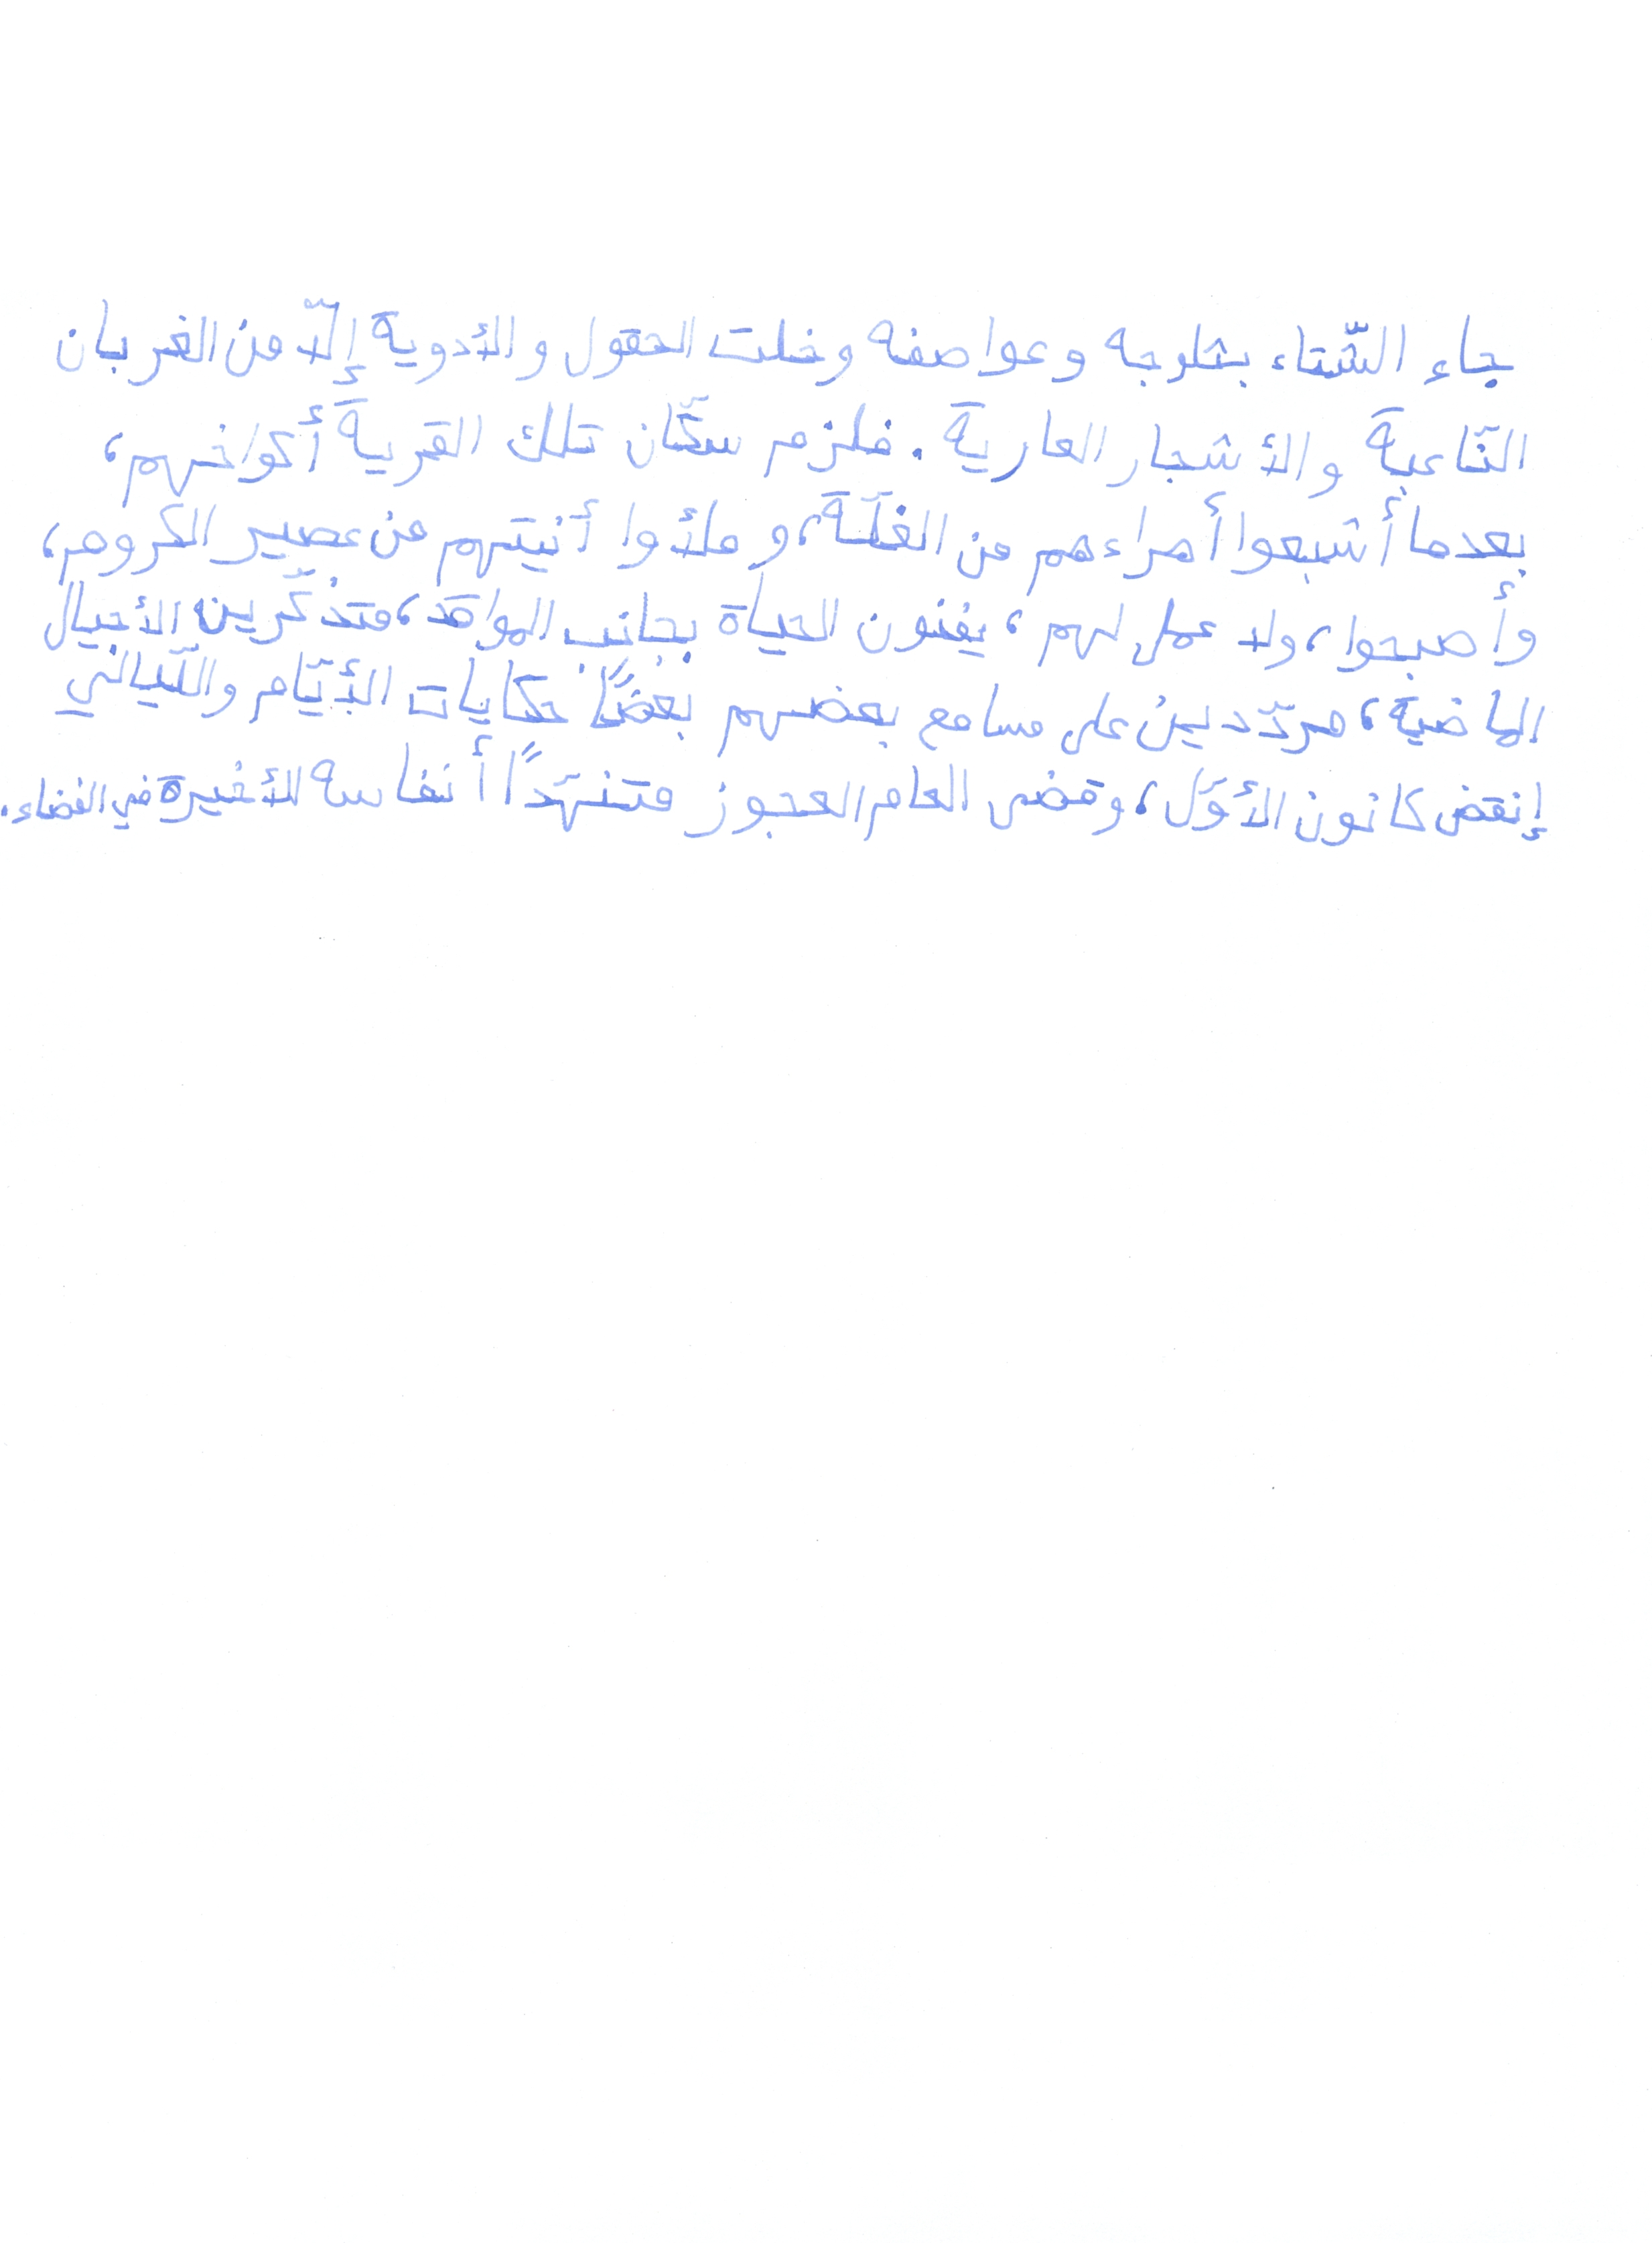 جاء الشّتاء بثلوجه وعواصفه وخلت الحقول والأدوية إلّا من الغربان
النّاعبة والأشجار العارية. فلزم سكّان تلك القرية أكواخهم،
بعدما أشبعوا أهراءهم من الغلّة، وملأوا أنيتهم من عصير الكروم،
وأصبحوا، ولا عمل لهم، يفنون الحياة بجانب المواقد، متذكّرين الأجيال
الماضية، مردّدين على مسامع بعضهم بعضًا حكايات الأيّام واللّيالي
إنقض كانون الأوّل، وقضى العام العجوز متنهّدًا أنفاسه الأخيرة في الفضاء.